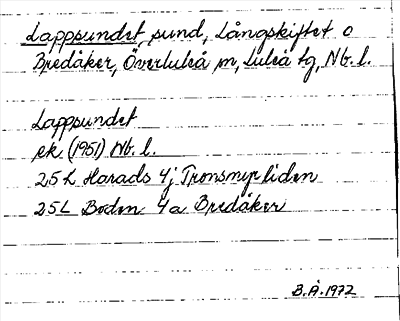 Lappsundet, sund, Långskiftet o
Bredåker, Överluleå sn, Luleå tg, Nb. l.
Lappsundet
ek (1951) Nb. l.
25 L Harads 4j Tronsmyrliden
25 L Boden 4a Bredåker
B.Å. 1972